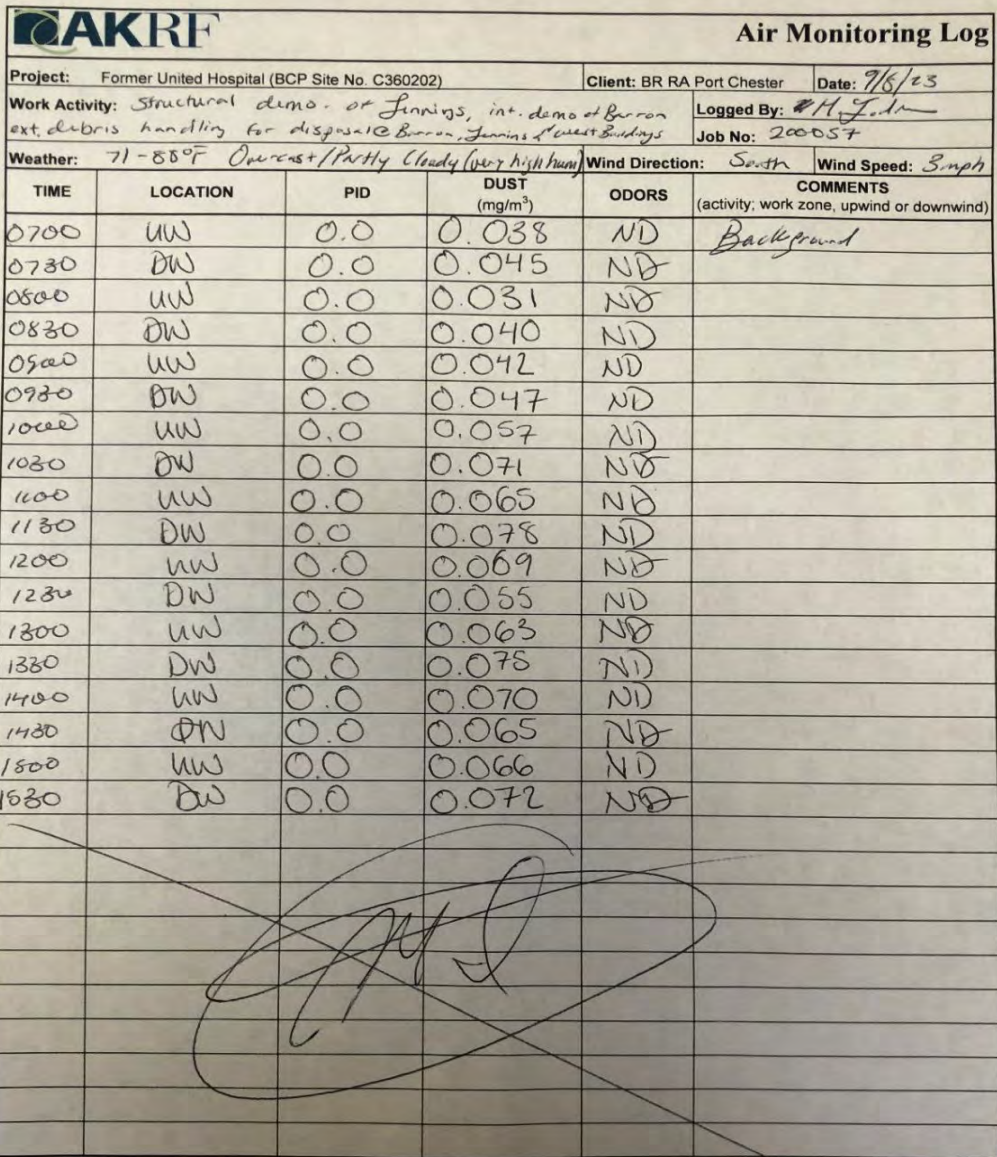 AKRF
Air Monitoring Log
Project: Former United Hospital (BCP Site No. C360202) Client: BR RA Port Chester Date: 9/8/23
Work Activity: Structural demo. of Jennings, int. demo of Barron Logged By: M.
ext. debris handling for disposal @ Barron, Jennins & West Buildings Job No: 200057
Weather: 71-88°F Overcast/Partly Cloudy (very high hum) Wind Direction: South Wind Speed: 3mph
TIME LOCATION PID DUST (mg/m³) ODORS COMMENTS (activity; work zone, upwind or downwind)
0700 UW 0.0 0.038 ND Background
0730 DW 0.0 0.045 ND
0800 UW 0.0 0.031 ND
0830 DW 0.0 0.040 ND
0900 UW 0.0 0.042 ND
0930 DW 0.0 0.047 ND
1000 UW 0.0 0.057 ND
1030 DW 0.0 0.071 ND
1100 UW 0.0 0.065 ND
1130 DW 0.0 0.078 ND
1200 UW 0.0 0.069 ND
1230 DW 0.0 0.055 ND
1300 UW 0.0 0.063 ND
1330 DW 0.0 0.075 ND
1400 UW 0.0 0.070 ND
1430 DW 0.0 0.065 ND
1500 UW 0.0 0.066 ND
1530 DW 0.0 0.072 ND